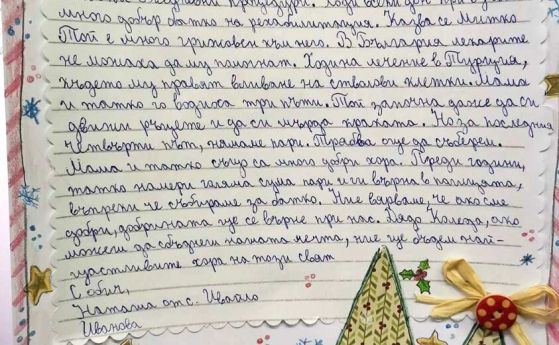 много добър батко на рехабилитация. Казва се Митко
Той е много грижовен към него. В България лекарите
не можаха да му помогнат. Ходиха лечение в Турция,
където му правят вливане на стволови клетки. Мама
и татко го водиха три пъти. Той започна даже да си
движи ръцете и да си мърда краката. Но за последния
четвърти път, нямаме пари. Трябва още да съберем.
Мама и татко също са много добри хора. Преди години,
татко намери голяма сума пари и ги върна в полицията,
въпреки че събираме за батко. Ние вярваме, че ако сме
добри, добрината ще се върне при нас. Дядо Коледа, ако
можеш да сбъднеш нашата мечта, ние ще бъдем най-
щастливите хора на този свят
С обич,
Наташа от с. Ивайло
Иванова